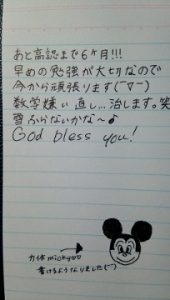 あと高認まで6ヶ月!!!
早めの勉強が大切なので
今から頑張ります(￣▽￣)
数学嫌い直し...治します。笑
雪ふらないかな〜♪
God bless you!
mickyoo
書けるようなりました(^^)